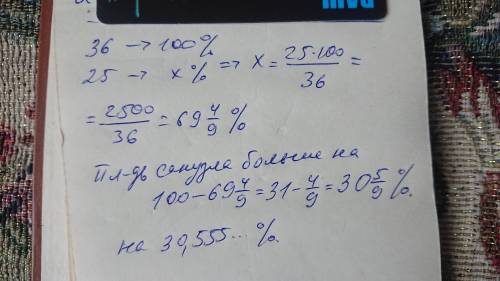 36 → 100%
25 → x% ⇒ x = 25·100/36 =
= 2500/36 = 69 4/9 %
Пл-дь санузла больше на
100 – 69 4/9 = 31 – 4/9 = 30 5/9 %.
на 30,555... %.